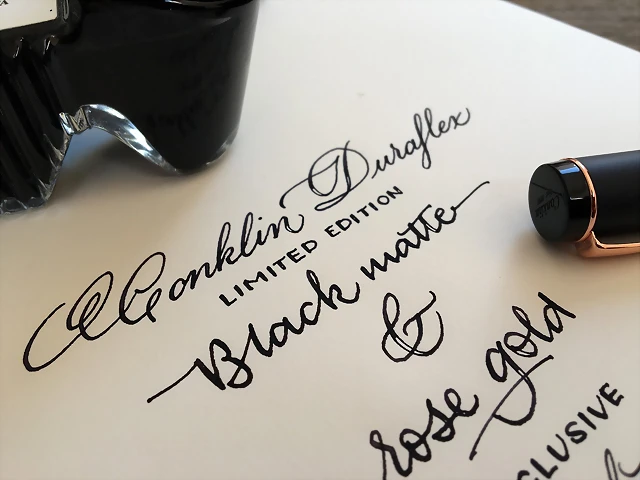 Conklin Duraflex
LIMITED EDITION
Black matte
&
rose gold